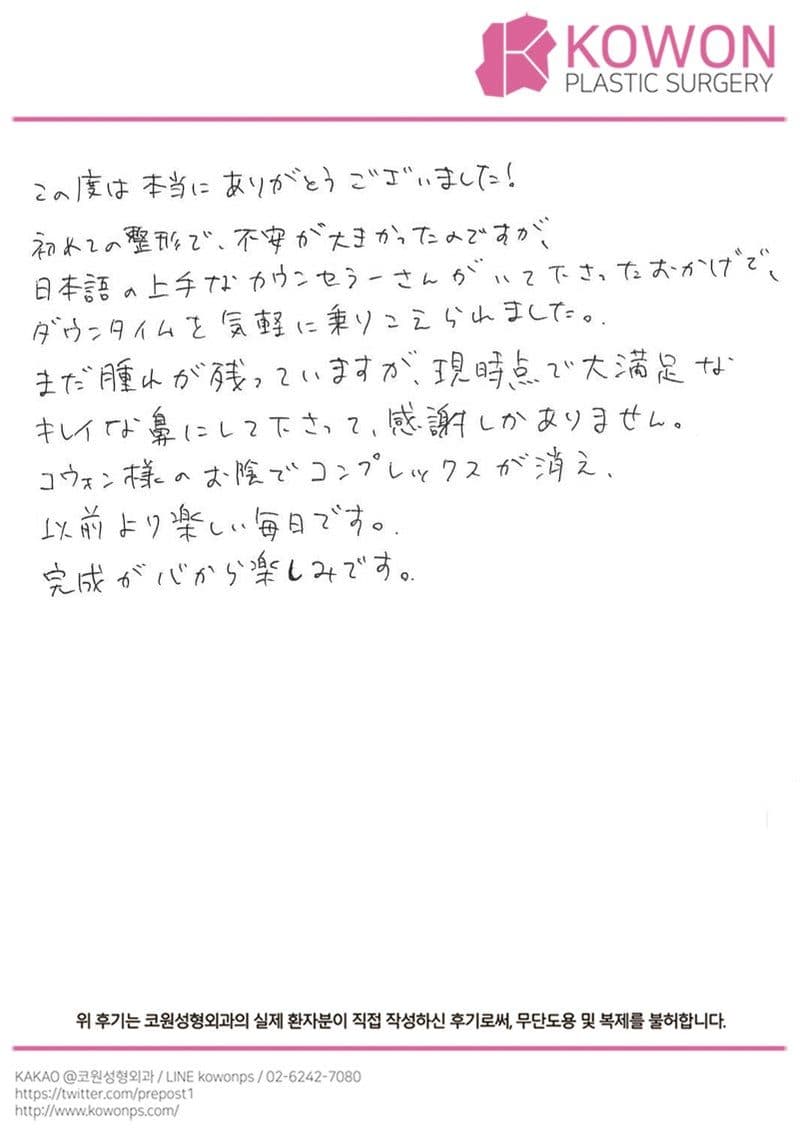 KOWON
PLASTIC SURGERY
この度は本当にありがとうございました!
初めての整形で、不安が大きかったのですが、
日本語の上手なカウンセラーさんがいて下さったおかげで、
ダウンタイムを気軽に乗りこえられました。
まだ腫れが残っていますが、現時点で大満足な
キレイな鼻にして下さって、感謝しかありません。
コウォン様のお陰でコンプレックスが消え、
以前より楽しい毎日です。
完成が心から楽しみです。
위 후기는 코원성형외과의 실제 환자분이 직접 작성하신 후기로써, 무단도용 및 복제를 불허합니다.
KAKAO @코원성형외과 / LINE kowonps / 02-6242-7080
https://twitter.com/prepost1
http://www.kowonps.com/